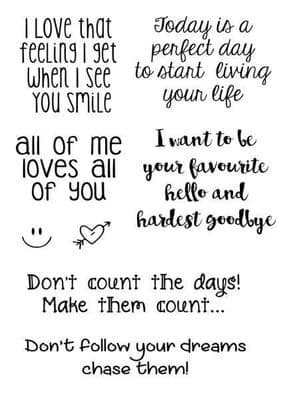 I LOVE that
feeling I get
when I see
you smile
Today is a
perfect day
to start living
your life
all of me
loves all
of you
I want to be
your favourite
hello and
hardest goodbye
Don't count the days!
Make them count...
Don't follow your dreams
chase them!